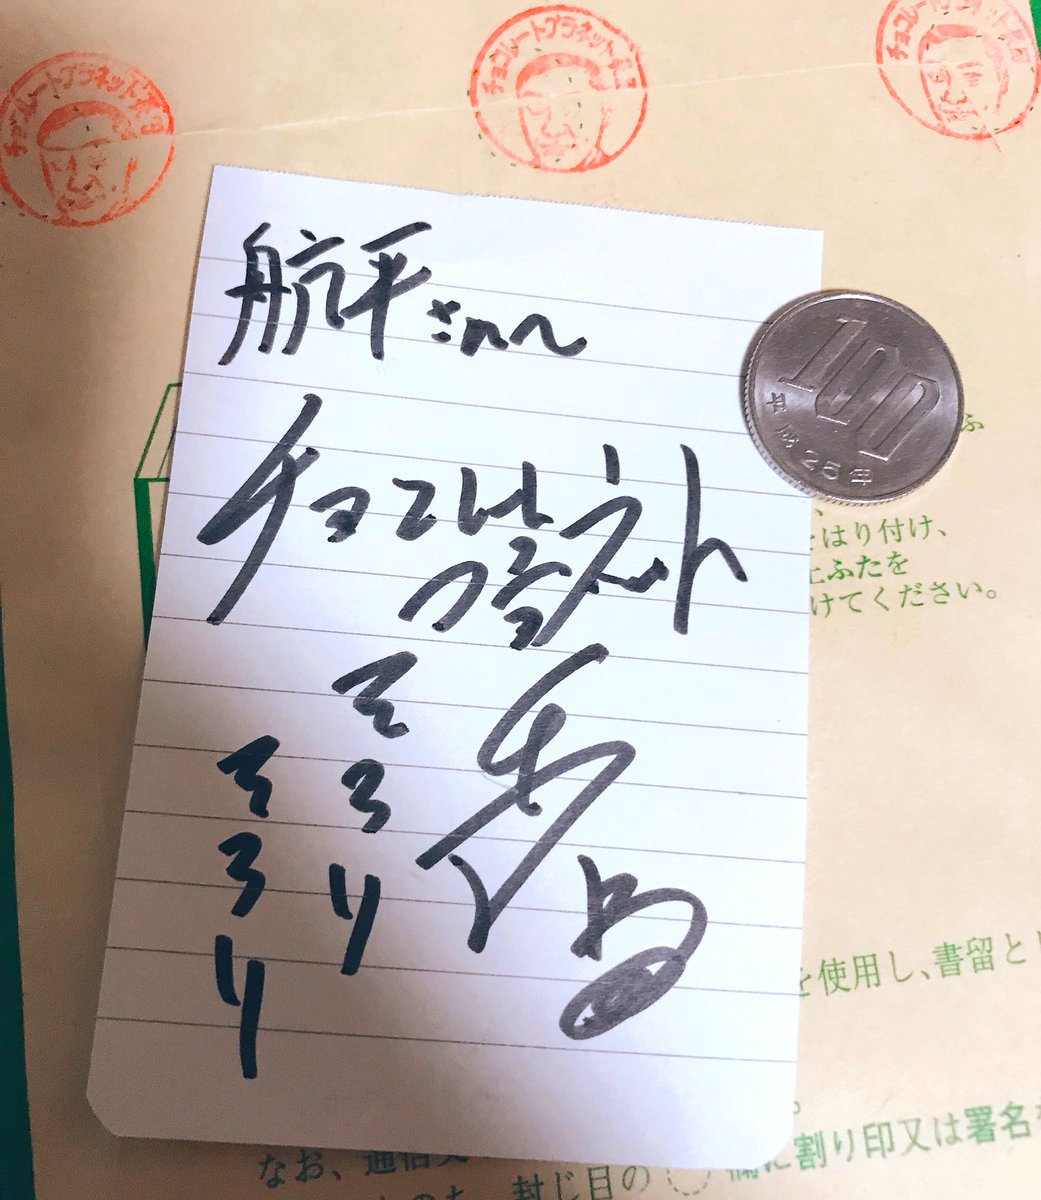 チョコレートプラネット長田
チョコレートプラネット長田
チョコレートプラネット長田
航平さんへ
チョコレート
プラネット
長田
そろり
そろり
100
平成25年
ふ
はり付け、
上ふたを
けてください。
を使用し、書留とし
なお、通信文
欄に割り印又は署名を
封じ目の